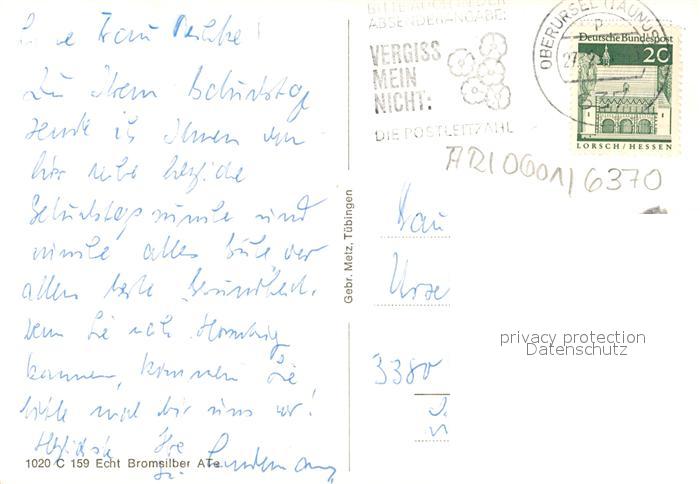 BITTE AUCH IN DER
ABSENDERANGABE:
VERGISS
MEIN
NICHT:
DIE POSTLEITZAHL
OBERURSEL (TAUNUS)
Deutsche Bundespost
20
LORSCH/HESSEN
ARI0601/6370
Frau
Zu Ihrem Geburtstag
sende ich Ihnen von
hier liebe herzliche
Geburtstagswünsche und
wünsche alles Gute vor
allem beste Gesundheit.
Wenn Sie nach Homburg
kommen, kommen Sie
bitte mal bei uns vor!
Herzlichst Ihre
Gebr. Metz, Tübingen
3380
privacy protection
Datenschutz
1020 C 159 Echt Bromsilber ATe